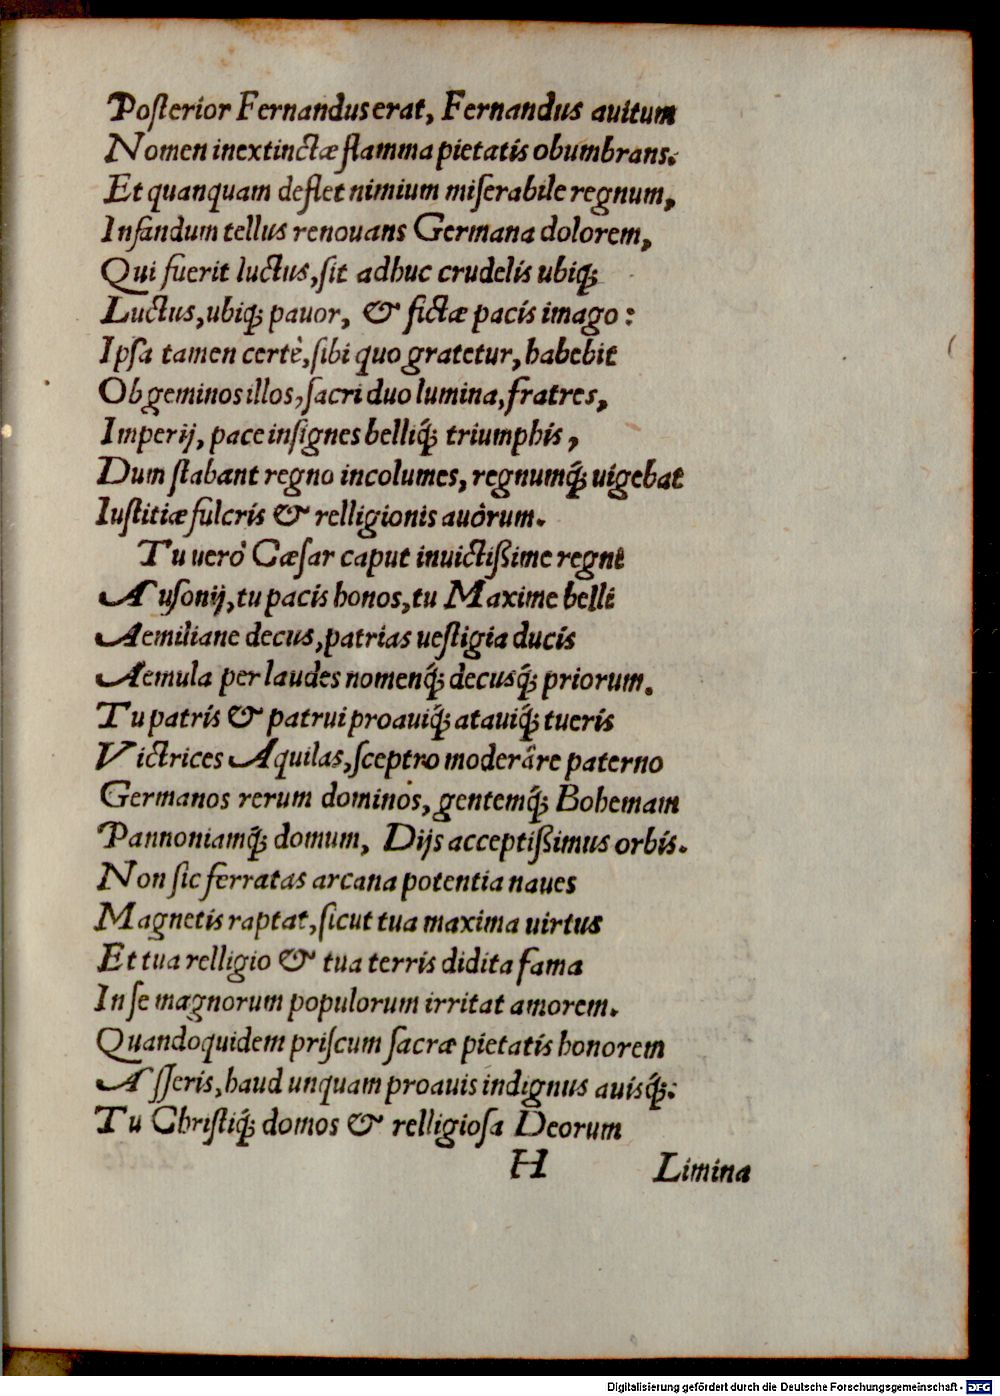 Poſterior Fernandus erat, Fernandus auitum
Nomen inextinctæ flamma pietatis obumbrans.
Et quanquam deflet nimium miſerabile regnum,
Infandum tellus renouans Germana dolorem,
Qui fuerit luctus, ſit adhuc crudelis ubiq́;
Luctus, ubiq́; pauor, & fictæ pacis imago:
Ipſa tamen certè, ſibi quo gratetur, habebit
Ob geminos illos, ſacri duo lumina, fratres,
Imperij, pace inſignes belliq́; triumphis,
Dum ſtabant regno incolumes, regnumq́; uigebat
Iuſtitiæ fulcris & relligionis auôrum.
Tu uerò Cæſar caput inuictißime regni
Auſonij, tu pacis honos, tu Maxime belli
Aemiliane decus, patrias ueſtigia ducis
Aemula per laudes nomenq́; decusq́; priorum.
Tu patris & patrui proauiq́; atauiq́; tueris
Victrices Aquilas, ſceptro moderâre paterno
Germanos rerum dominos, gentemq́; Bohemam
Pannoniamq́; domum, Dijs acceptißimus orbis.
Non ſic ferratas arcana potentia naues
Magnetis raptat, ſicut tua maxima uirtus
Et tua relligio & tua terris didita fama
In ſe magnorum populorum irritat amorem.
Quandoquidem priſcum ſacræ pietatis honorem
Aſſeris, haud unquam proauis indignus auisq́;:
Tu Chriſtiq́; domos & relligioſa Deorum
H Limina
Digitalisierung gefördert durch die Deutsche Forschungsgemeinschaft - DFG